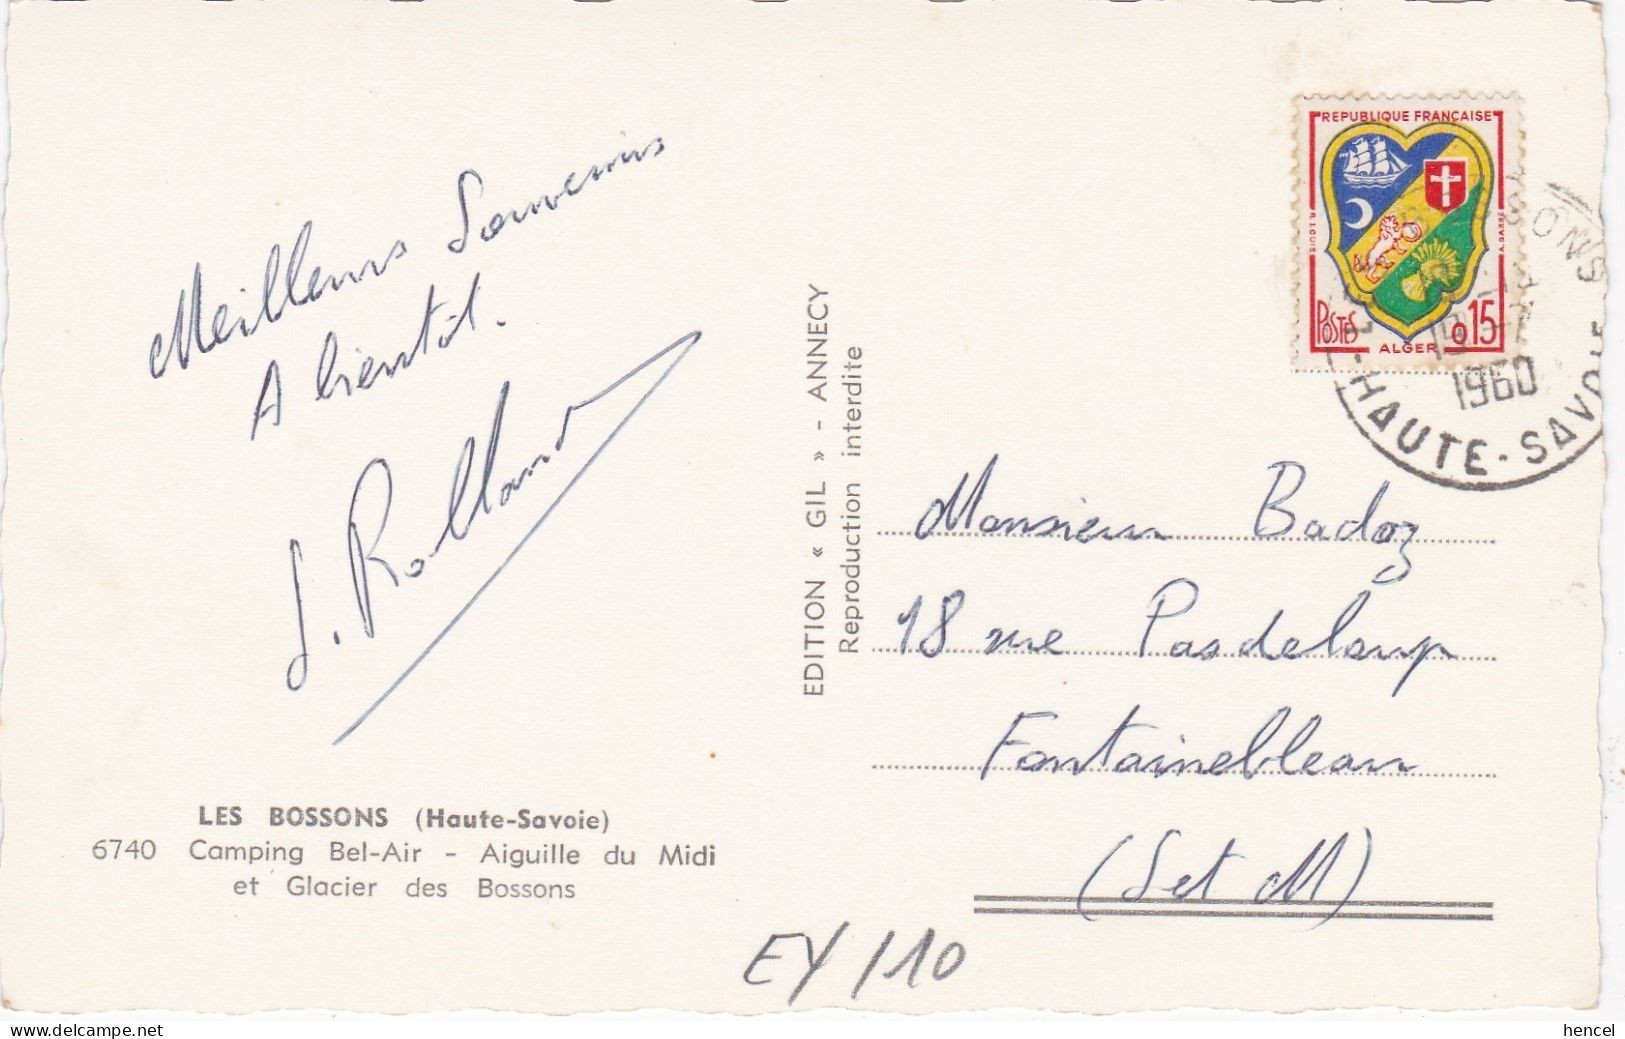 Meilleurs Souvenirs
A bientôt.
J. Rolland
LES BOSSONS (Haute-Savoie)
6740 Camping Bel-Air - Aiguille du Midi
et Glacier des Bossons
EDITION « GIL » - ANNECY
Reproduction interdite
REPUBLIQUE FRANÇAISE
POSTES
ALGER
0,15
1960
HAUTE-SAVOIE
Monsieur Badoz
18 rue Pasdeloup
Fontainebleau
(S et M)
EY/10
www.delcampe.net
hencel